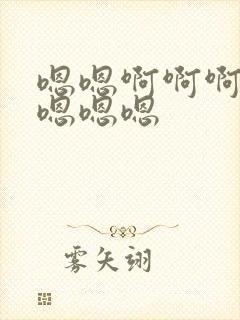 嗯嗯啊啊啊
嗯嗯嗯
雾矢翊